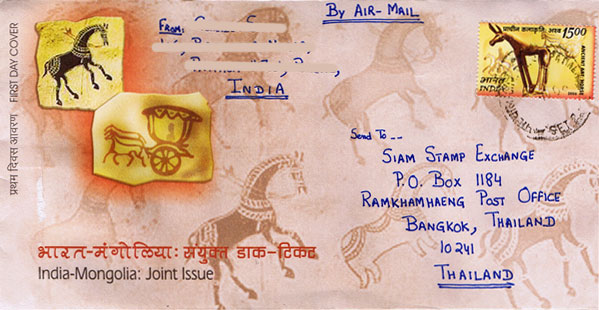 प्रथम दिवस आवरण FIRST DAY COVER
FROM:
INDIA
BY AIR-MAIL
प्राचीन कलाकृति अश्व 1500
ANCIENT ART HORSE
भारत
INDIA
Send To --
SIAM STAMP EXCHANGE
P.O. BOX 1184
RAMKHAMHAENG POST OFFICE
BANGKOK, THAILAND
10241
THAILAND
भारत-मंगोलिया: संयुक्त डाक-टिकट
India-Mongolia: Joint Issue